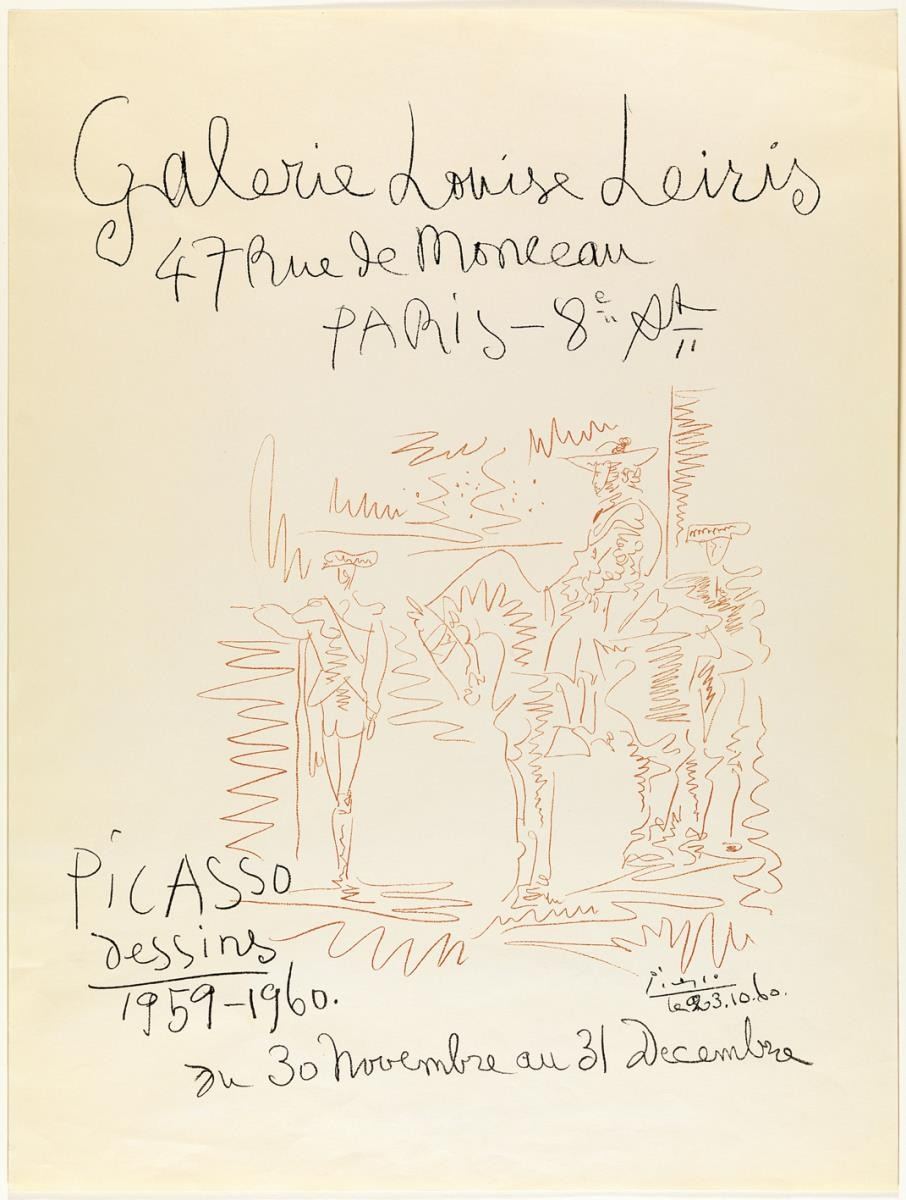 Galerie Louise Leiris
47 Rue de Monceau
PARIS - 8e
PiCASSO
dessins
1959-1960.
du 30 Novembre au 31 Decembre
Picasso
le 23.10.60.